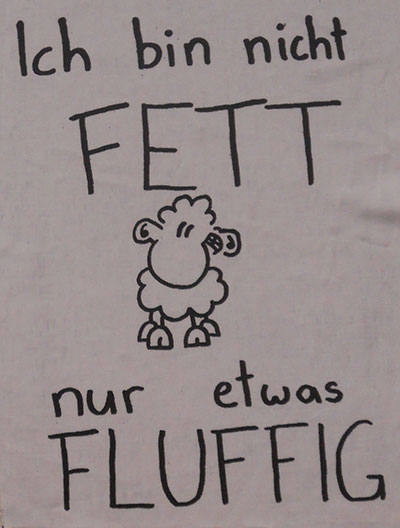 Ich bin nicht
FETT
nur etwas
FLUFFIG